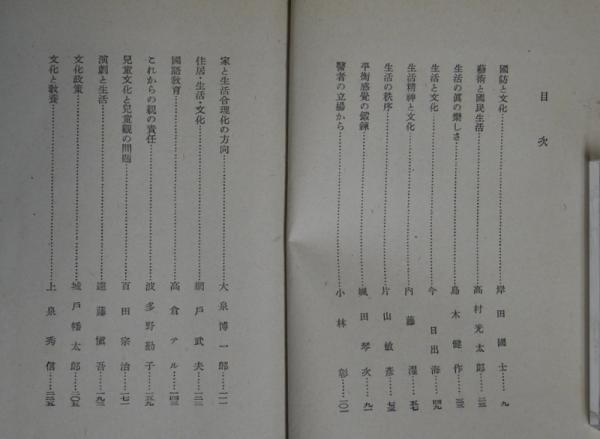 目次
國防と文化……岸田國士……九
藝術と國民生活……高村光太郎……三
生活の眞の樂しさ……島木健作……三
生活と文化……今日出海……四九
生活精神と文化……內藤濯……五七
生活の秩序……片山敏彥……七五
平衡感覺の鍛鍊……颯田琴次……九一
醫者の立場から……小林彰……一〇一
家と生活合理化の方向……大泉博一郎……一一一
住居・生活・文化……網戶武夫……一三三
國語敎育……高倉テル……一四三
これからの親の責任……波多野勤子……一五九
兒童文化と兒童觀の問題……百田宗治……一七一
演劇と生活……遠藤愼吾……一九三
文化政策……城戶幡太郎……二〇五
文化と敎養……上泉秀信……二三五